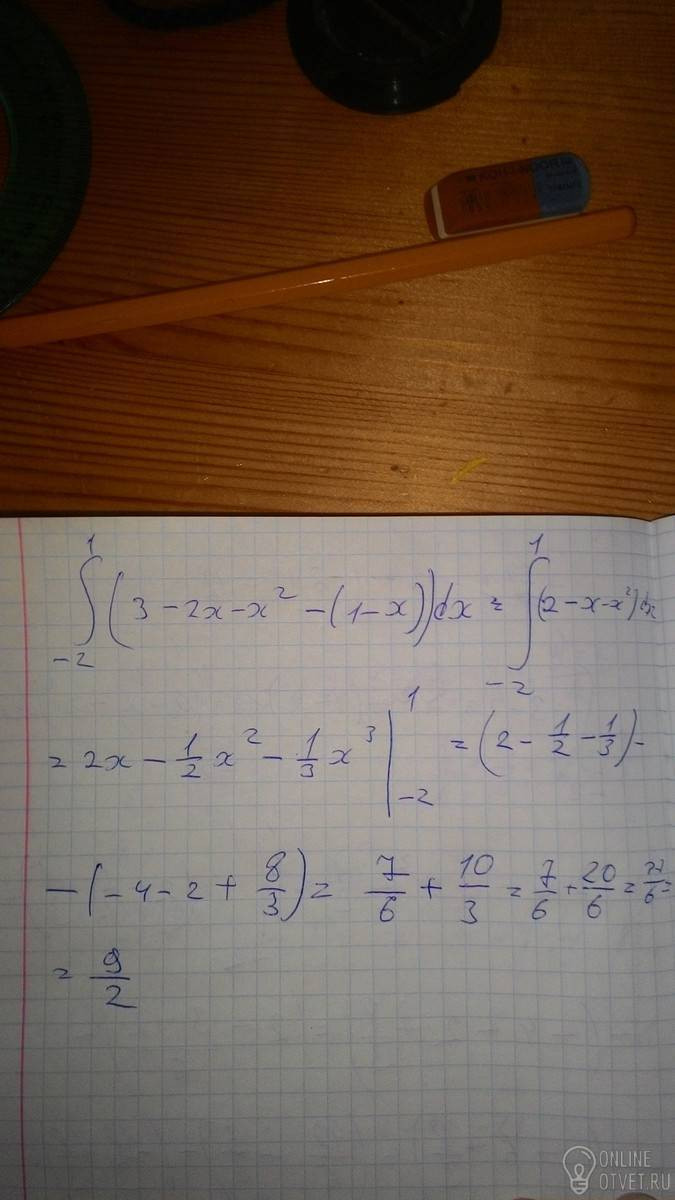 ∫₋₂¹ (3 - 2x - x² - (1 - x))dx = ∫₋₂¹ (2 - x - x²)dx
= 2x - 1/2 x² - 1/3 x³ |₋₂¹ = (2 - 1/2 - 1/3) -
- (-4 - 2 + 8/3) = 7/6 + 10/3 = 7/6 + 20/6 = 27/6 =
= 9/2
ONLINE
OTVET.RU